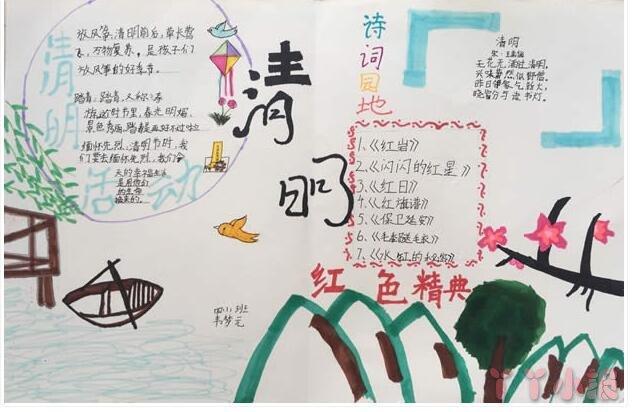 清明活动
放风筝,清明前后,草长莺
飞,万物复春,是孩子们
放风筝的好季节。
踏青:踏青,又称
时节里,春光明媚,
景色秀丽,踏青
缅怀先烈,清明节时,我
们里去缅怀先烈,我们今
天的幸福生活
是用他们
的生命
换来的。
清明
四(1)班
韦梦元
诗词园地
1、《红岩》
2、《闪闪的红星》
3、《红日》
4、《红旗谱》
5、《保卫延安》
6、
7、《水缸的秘密》
红色精典
清明
宋:王禹偁
无花无酒过清明,
兴味萧然似野僧。
昨日邻家乞新火,
晓窗分与读书灯。
丫丫小报